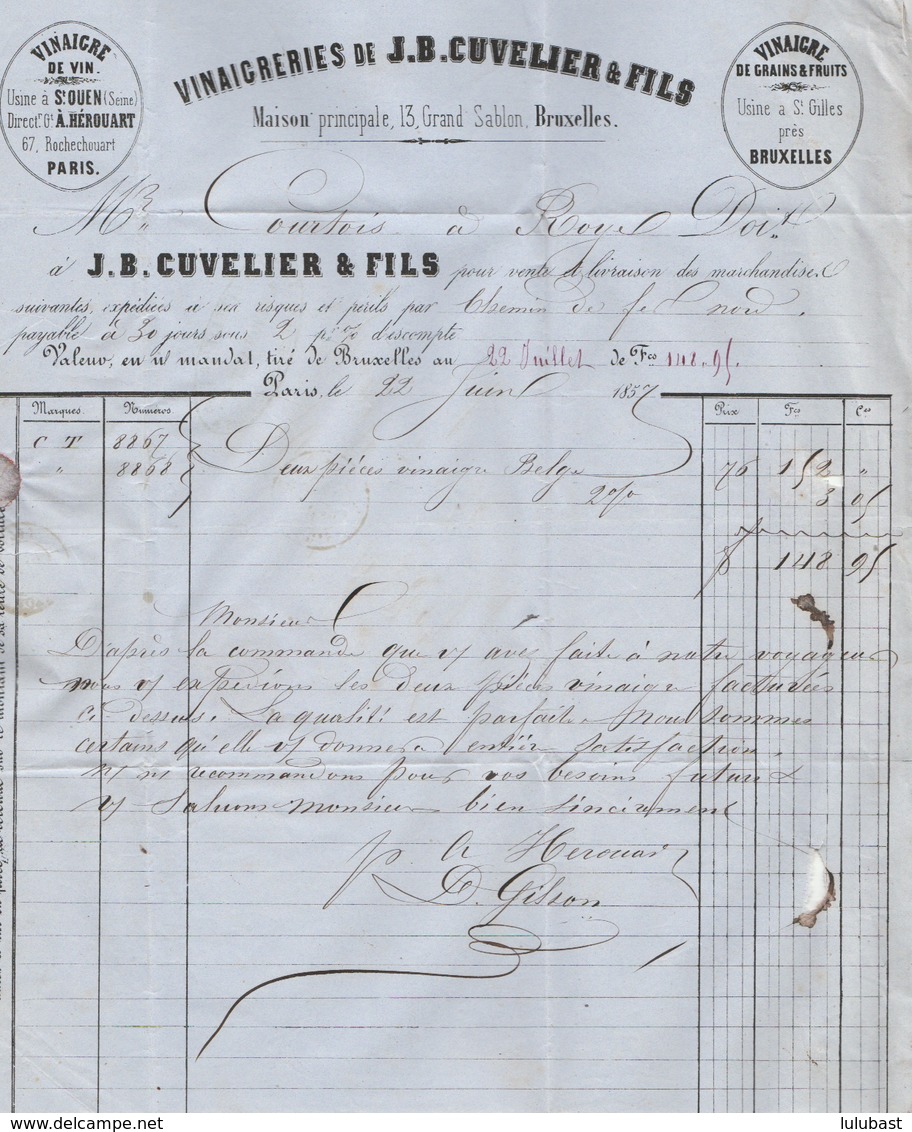 VINAIGRE
DE VIN.
Usine à St OUEN (Seine)
Directr. Gt A. HÉROUART
67, Rochechouart
PARIS.
VINAIGRERIES DE J.B. CUVELIER & FILS
Maison principale, 13, Grand Sablon, Bruxelles.
VINAIGRE
DE GRAINS & FRUITS
Usine a St Gilles
près
BRUXELLES
Mr Courtois à Roye Doit
à J.B. CUVELIER & FILS pour vente & livraison des marchandises
suivantes, expédiées à ses risques et périls par Chemin de fer nord.
payable à 30 jours sous 2 pr % d'escompte
Valeur, en n/ mandat, tiré de Bruxelles au 22 Juillet de Fcs 148.95.
Paris, le 22 Juin 1857
Marques. Numéros Prix Fcs Ces
C T 8867
" 8868 Deux pièces vinaigre Belge 76 152 "
2% 3 05
148 95
Monsieur
D'après la commande que v/ avez faite à notre voyageur
nous v/ expédions les deux pièces vinaigre facturées
ci dessus. La qualité est parfaite nous sommes
certains qu'elle v/ donnera entière satisfaction.
n/ n/ recommandons pour vos besoins futurs &
v/ saluons monsieur bien sincèrement
p. A Herouart
D. Gilson
lulubast